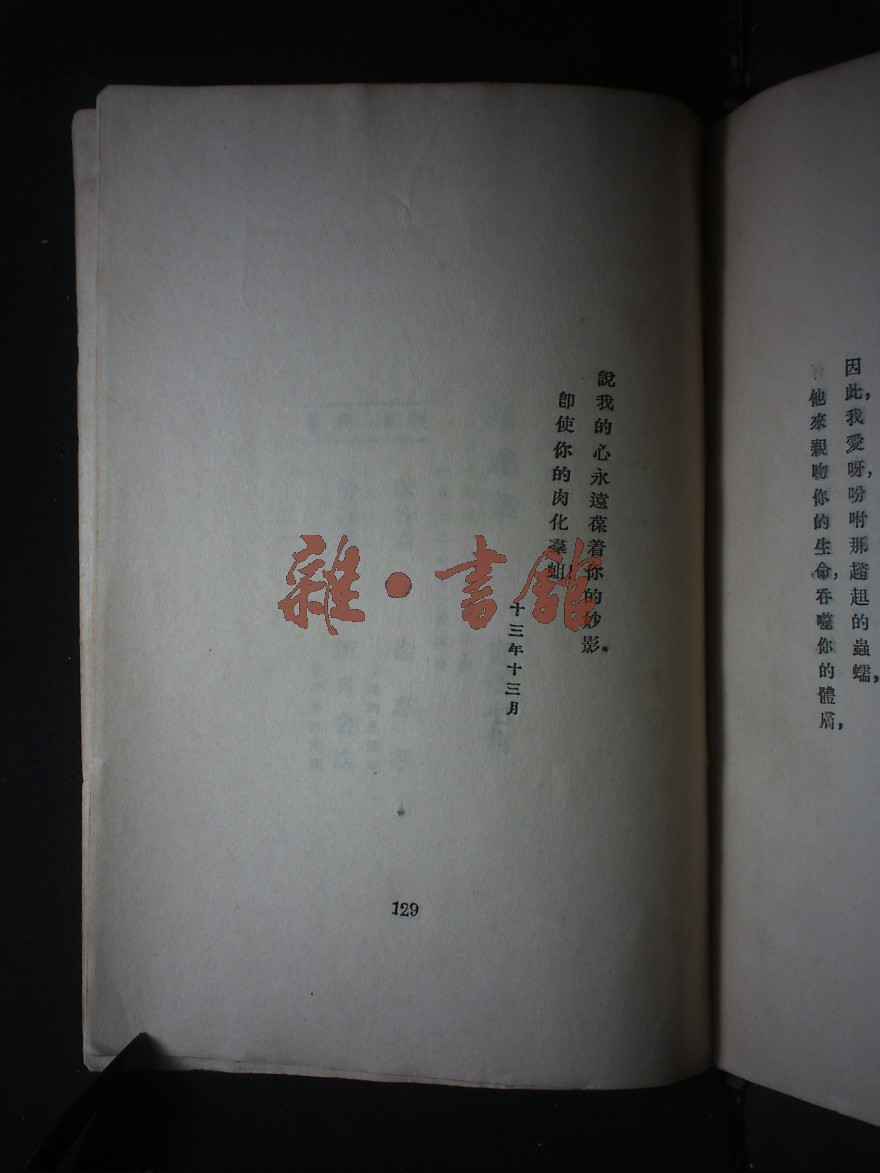 因此，我愛呀，吩咐那趦趄的蟲蠕，
他來親吻你的生命，吞噬你的體膚，
說我的心永遠葆着你的妙影。
即使你的肉化羣蛆！
十三年十三月
129
雜·書館